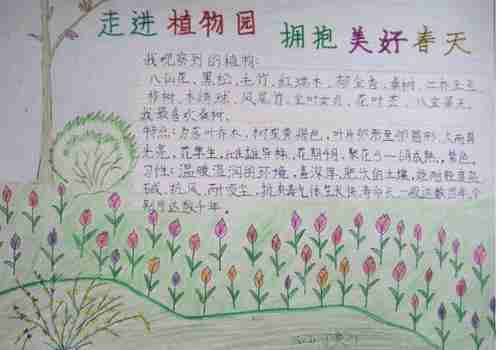 走进植物园 拥抱美好春天
我观察到的植物:
八仙花、黑松、毛竹、红瑞木、郁金香、桑树、二乔玉兰
榉树、木绣球、凤尾竹、金叶女贞、花叶芒、八宝景天。
我最喜欢桑树。
特点:为落叶乔木,树皮黄褐色,叶片卵形至卵圆形,上面有
光亮,花单生,雌雄异株,花期4月,聚花5—6月成熟,紫色。
习性:温暖湿润的环境,喜深厚、肥沃的土壤,能耐轻度盐
碱,抗风,耐烟尘,抗有毒气体生长快寿命长一般达数百年个
别可达数千年。